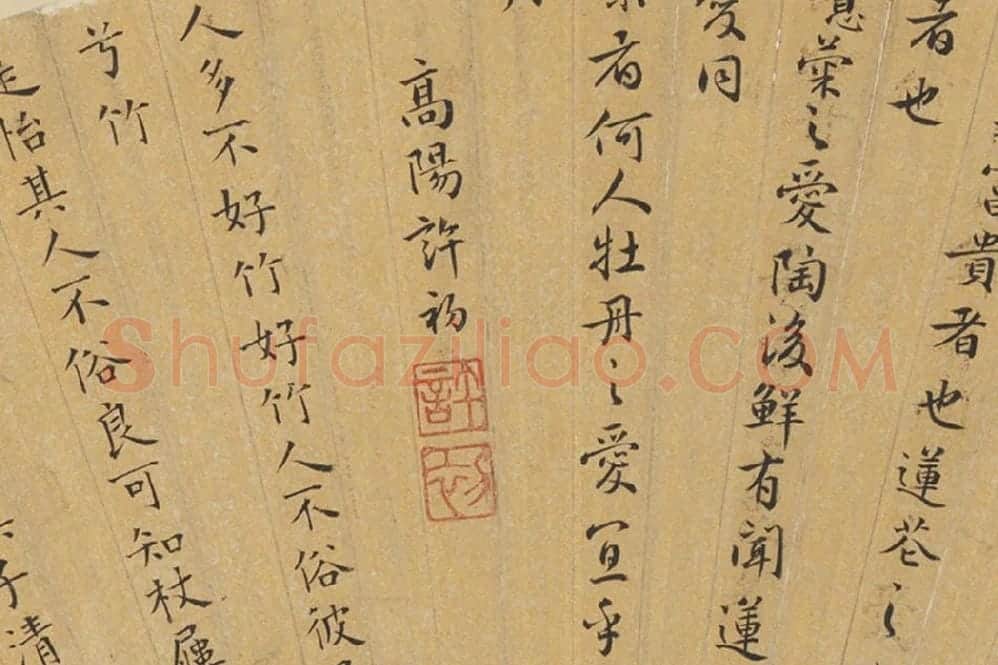 富貴者也蓮花之
者也
噫菊之愛陶後鮮有聞蓮
愛同
者何人牡丹之愛宜乎
高陽許初
許初
人多不好竹好竹人不俗彼
兮竹
怡其人不俗良可知杖屨
子清
Shufaziliao.COM